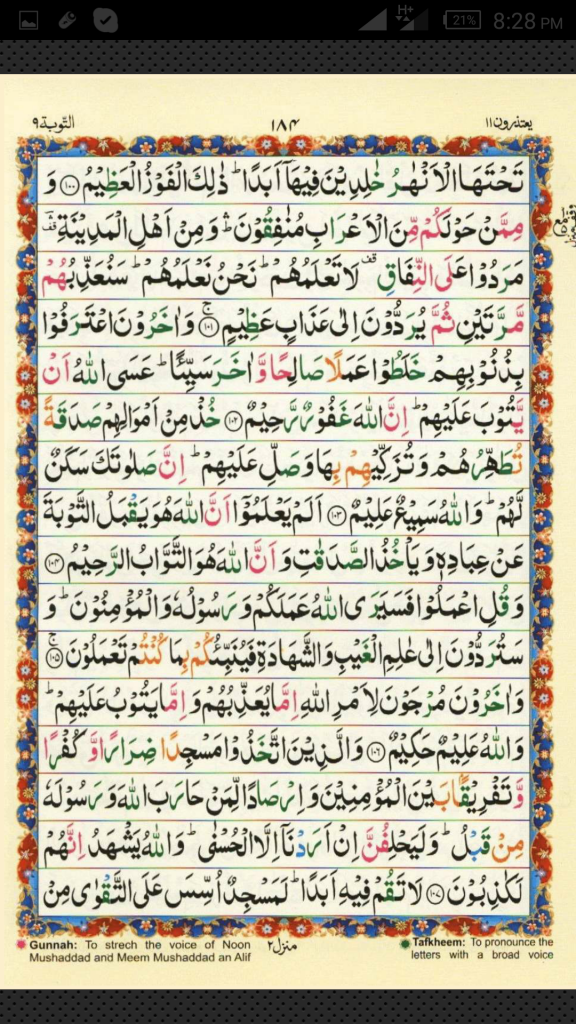 21% 8:28 PM
التوبة ٩ ١٨٤ يعتذرون ١١
تَحْتَهَا الْاَنْهٰرُ خٰلِدِيْنَ فِيْهَاۤ اَبَدًا ؕ ذٰلِكَ الْفَوْزُ الْعَظِيْمُ ﴿۱۰۰﴾ وَ
مِمَّنْ حَوْلَكُمْ مِّنَ الْاَعْرَابِ مُنٰفِقُوْنَ ۛؕ وَ مِنْ اَهْلِ الْمَدِيْنَةِ ۛ۟ؔ
مَرَدُوْا عَلَى النِّفَاقِ ۟ لَا تَعْلَمُهُمْ ؕ نَحْنُ نَعْلَمُهُمْ ؕ سَنُعَذِّبُهُمْ
مَّرَّتَيْنِ ثُمَّ يُرَدُّوْنَ اِلٰى عَذَابٍ عَظِيْمٍ ﴿۱۰۱﴾ۚ وَ اٰخَرُوْنَ اعْتَرَفُوْا
بِذُنُوْبِهِمْ خَلَطُوْا عَمَلًا صَالِحًا وَّ اٰخَرَ سَيِّئًا ؕ عَسَى اللّٰهُ اَنْ
يَّتُوْبَ عَلَيْهِمْ ؕ اِنَّ اللّٰهَ غَفُوْرٌ رَّحِيْمٌ ﴿۱۰۲﴾ خُذْ مِنْ اَمْوَالِهِمْ صَدَقَةً
تُطَهِّرُهُمْ وَ تُزَكِّيْهِمْ بِهَا وَ صَلِّ عَلَيْهِمْ ؕ اِنَّ صَلٰوتَكَ سَكَنٌ
لَّهُمْ ؕ وَ اللّٰهُ سَمِيْعٌ عَلِيْمٌ ﴿۱۰۳﴾ اَلَمْ يَعْلَمُوْۤا اَنَّ اللّٰهَ هُوَ يَقْبَلُ التَّوْبَةَ
عَنْ عِبَادِهٖ وَ يَاْخُذُ الصَّدَقٰتِ وَ اَنَّ اللّٰهَ هُوَ التَّوَّابُ الرَّحِيْمُ ﴿۱۰۴﴾
وَ قُلِ اعْمَلُوْا فَسَيَرَى اللّٰهُ عَمَلَكُمْ وَ رَسُوْلُهٗ وَ الْمُؤْمِنُوْنَ ؕ وَ
سَتُرَدُّوْنَ اِلٰى عٰلِمِ الْغَيْبِ وَ الشَّهَادَةِ فَيُنَبِّئُكُمْ بِمَا كُنْتُمْ تَعْمَلُوْنَ ﴿۱۰۵﴾ۚ
وَ اٰخَرُوْنَ مُرْجَوْنَ لِاَمْرِ اللّٰهِ اِمَّا يُعَذِّبُهُمْ وَ اِمَّا يَتُوْبُ عَلَيْهِمْ ؕ
وَ اللّٰهُ عَلِيْمٌ حَكِيْمٌ ﴿۱۰۶﴾ وَ الَّذِيْنَ اتَّخَذُوْا مَسْجِدًا ضِرَارًا وَّ كُفْرًا
وَّ تَفْرِيْقًۢا بَيْنَ الْمُؤْمِنِيْنَ وَ اِرْصَادًا لِّمَنْ حَارَبَ اللّٰهَ وَ رَسُوْلَهٗ
مِنْ قَبْلُ ؕ وَ لَيَحْلِفُنَّ اِنْ اَرَدْنَاۤ اِلَّا الْحُسْنٰى ؕ وَ اللّٰهُ يَشْهَدُ اِنَّهُمْ
لَكٰذِبُوْنَ ﴿۱۰۷﴾ لَا تَقُمْ فِيْهِ اَبَدًا ؕ لَمَسْجِدٌ اُسِّسَ عَلَى التَّقْوٰى مِنْ
منزل ٢
Gunnah: To strech the voice of Noon
Mushaddad and Meem Mushaddad an Alif
Tafkheem: To pronounce the
letters with a broad voice